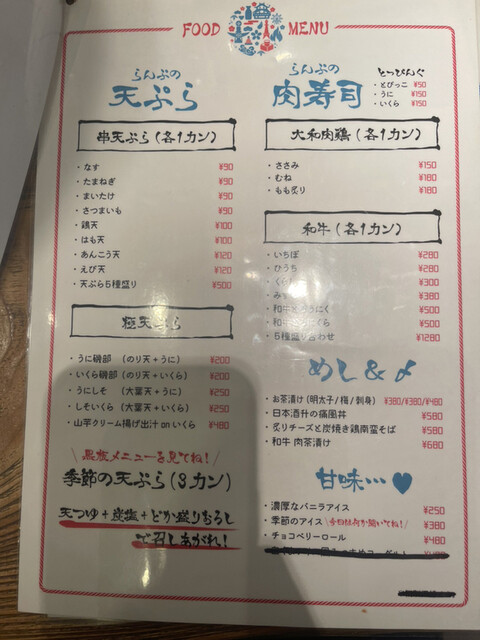 FOOD MENU
らんぷの
天ぷら
串天ぷら(各1カン)
・なす ¥90
・たまねぎ ¥90
・まいたけ ¥90
・さつまいも ¥90
・鶏天 ¥100
・はも天 ¥100
・あんこう天 ¥120
・えび天 ¥120
・天ぷら5種盛り ¥500
極天ぷら
・うに磯部 (のり天+うに) ¥200
・いくら磯部 (のり天+いくら) ¥200
・うにしそ (大葉天+うに) ¥250
・しそいくら (大葉天+いくら) ¥250
・山芋クリーム揚げ出汁 on いくら ¥480
黒板メニューを見てね!
季節の天ぷら(3カン)
天つゆ+炭塩+どか盛りおろし
で召しあがれ!
らんぷの
肉寿司
とっぴんぐ
・とびっこ ¥50
・うに ¥150
・いくら ¥150
大和肉鶏(各1カン)
・ささみ ¥150
・むね ¥180
・もも炙り ¥180
和牛(各1カン)
・いちぼ ¥280
・ひうち ¥280
¥300
・みす ¥380
・和牛とうにく ¥500
・和牛 くら ¥500
・5種盛り合わせ ¥1280
めし&〆
・お茶漬け(明太子/梅/刺身) ¥380/¥380/¥480
・日本酒升の痛風丼 ¥580
・炙りチーズと炭焼き鶏南蛮そば ¥580
・和牛 肉茶漬け ¥680
甘味…
・濃厚なバニラアイス ¥250
・季節のアイス 今日は何か聞いてね! ¥380
・チョコベリーロール ¥480